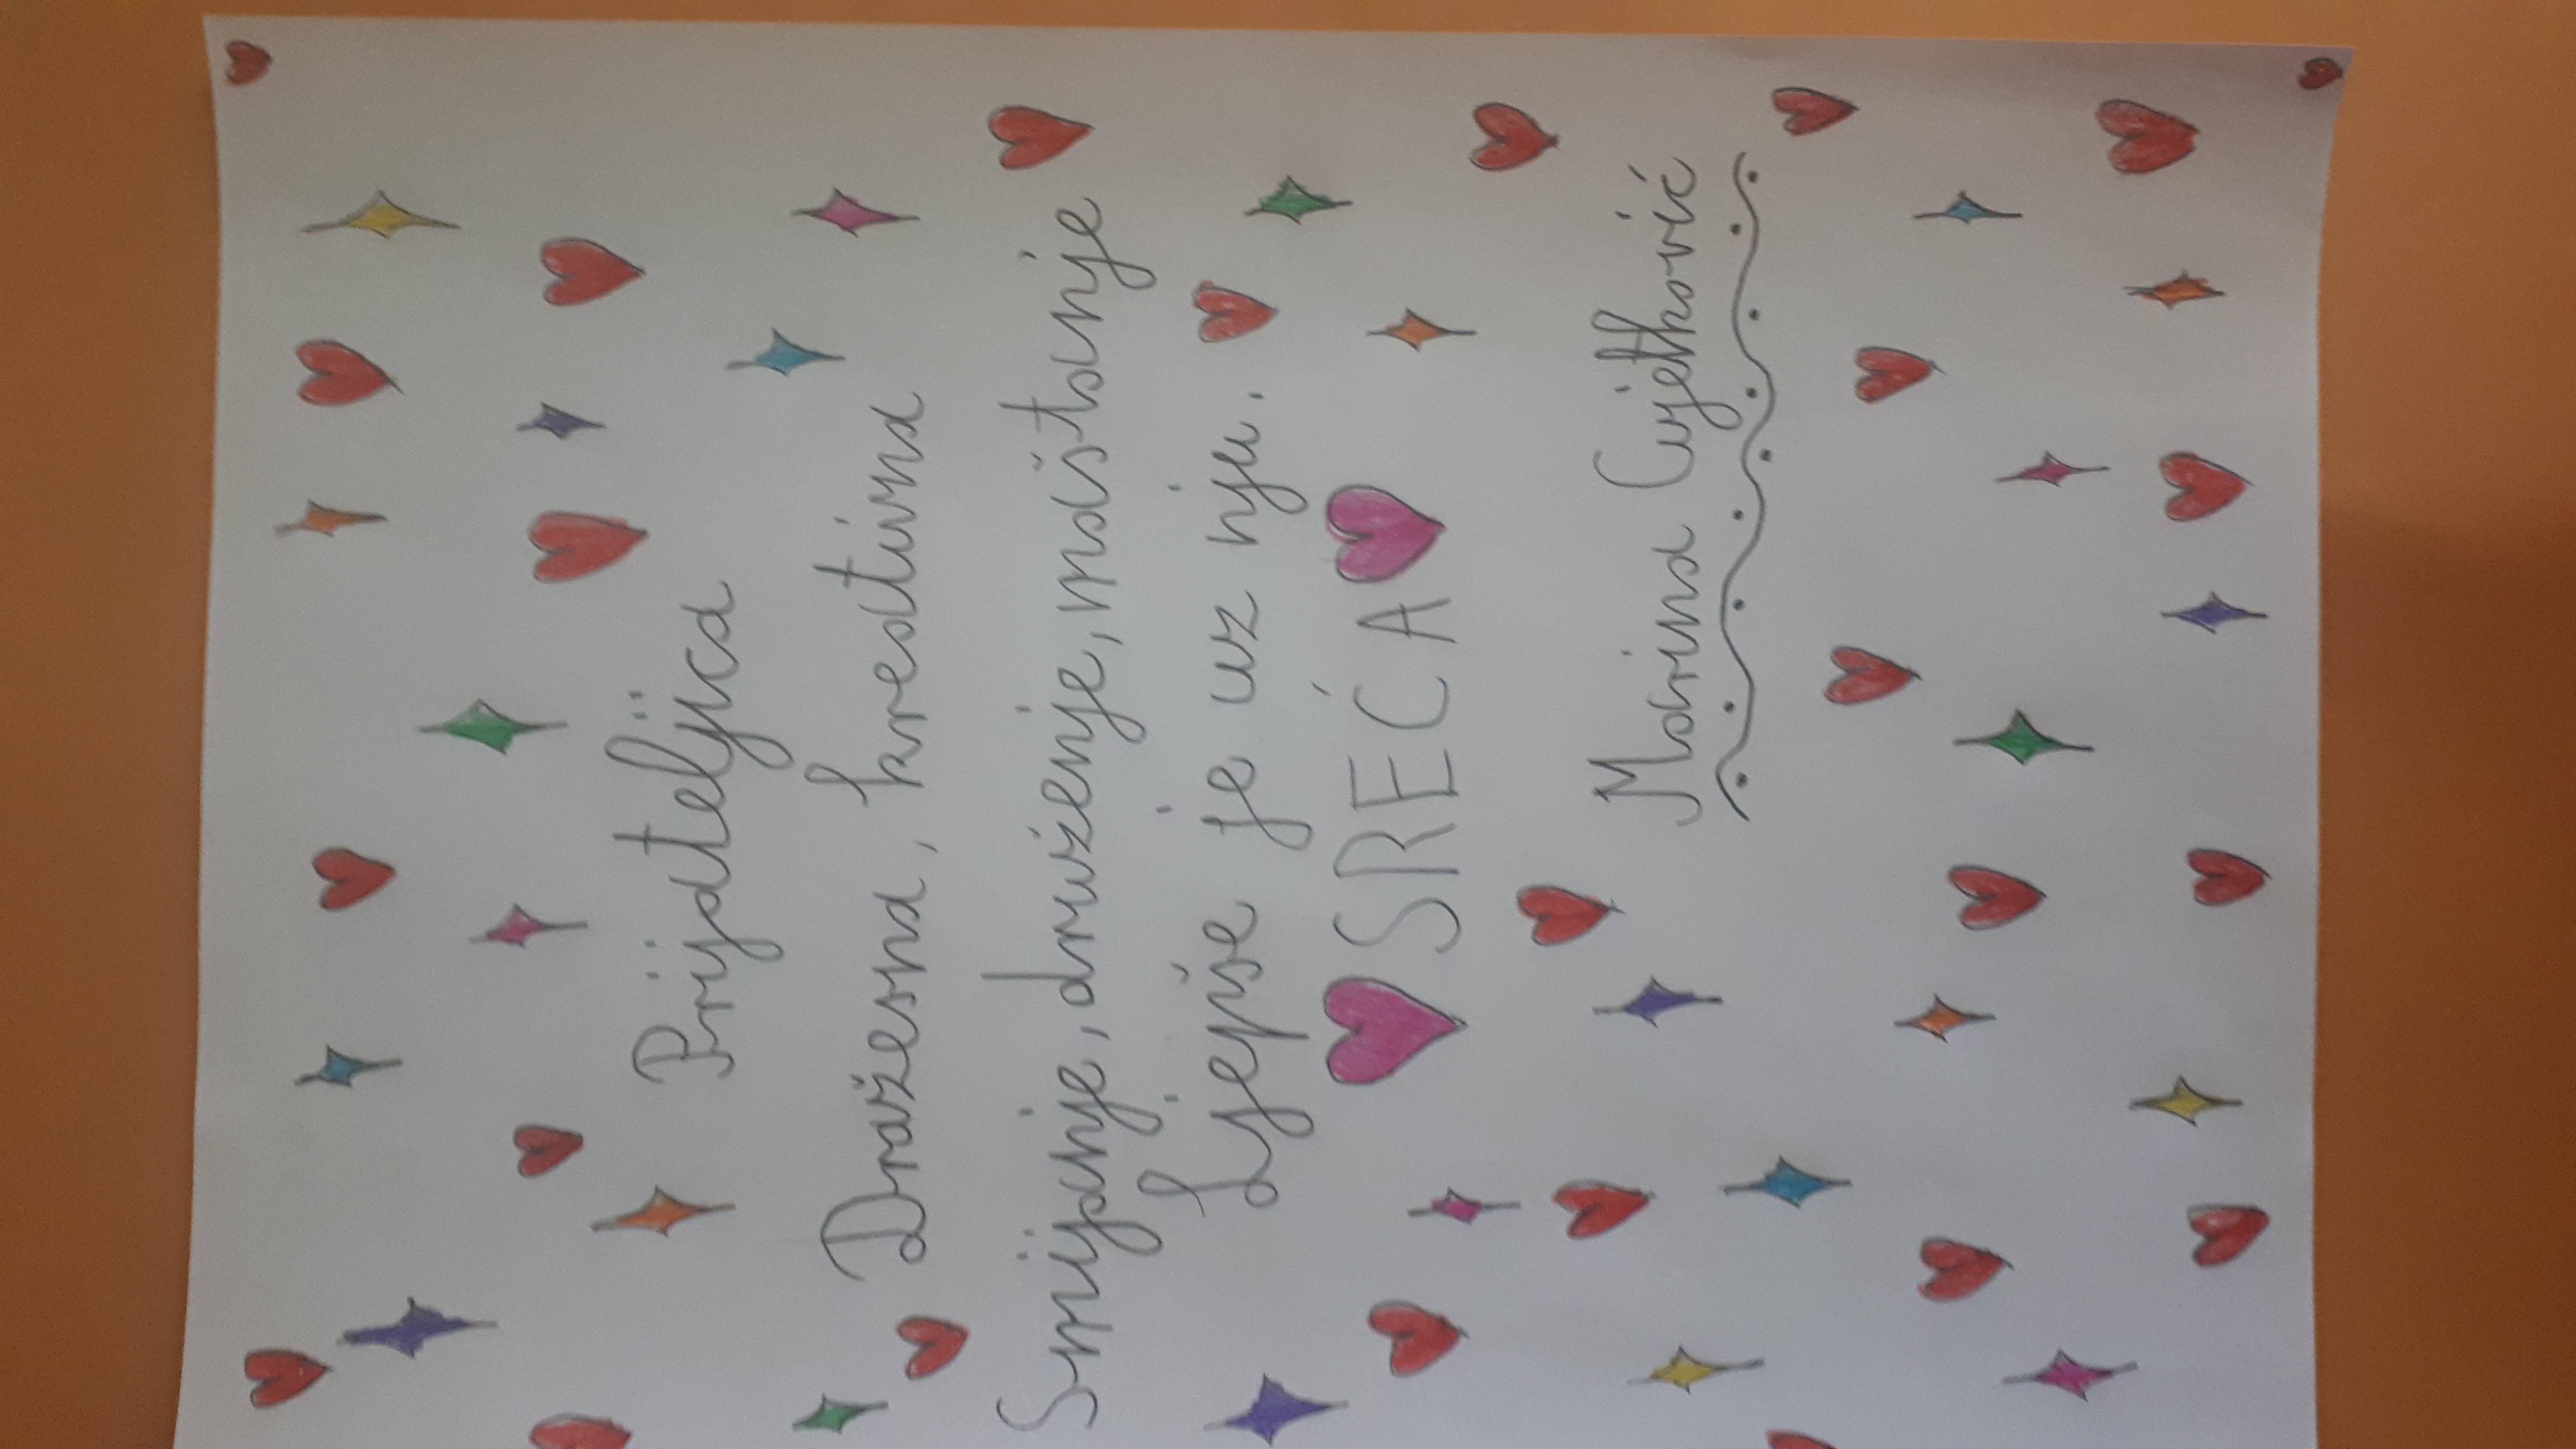 Prijateljica
Dražesna, kreativna
Smijanje, druženje, maštanje
Ljepše je uz nju.
SREĆA
Marina Cvjetković